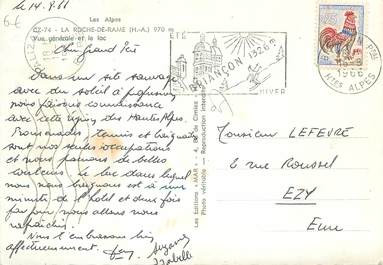 le 14.9.66
6€
Les Alpes
CZ-74 - LA ROCHE-DE-RAME (H.-A.) 970 m
Vue générale et le lac
Cher Grand Père
Dans un site sauvage
avec du soleil à
nous faisons connaissance
avec cette région des Hautes Alpes.
Promenades, tennis et baignade
sont nos seules occupations
et nous prenons de belles
couleurs. Le lac dans lequel
nous nous baignons est à une
minute de l'hôtel et deux fois
par jour nous allons nous
rafraîchir.
Nous t'embrassons bien
affectueusement
Suzanne
Isabelle
Les Editions "MAR"
Photo véritable - Reproduction interdite
ETE
BRIANÇON 1326m
HIVER
Htes ALPES
1966
Monsieur LEFEVRE
6 rue Roussel
EZY
Eure